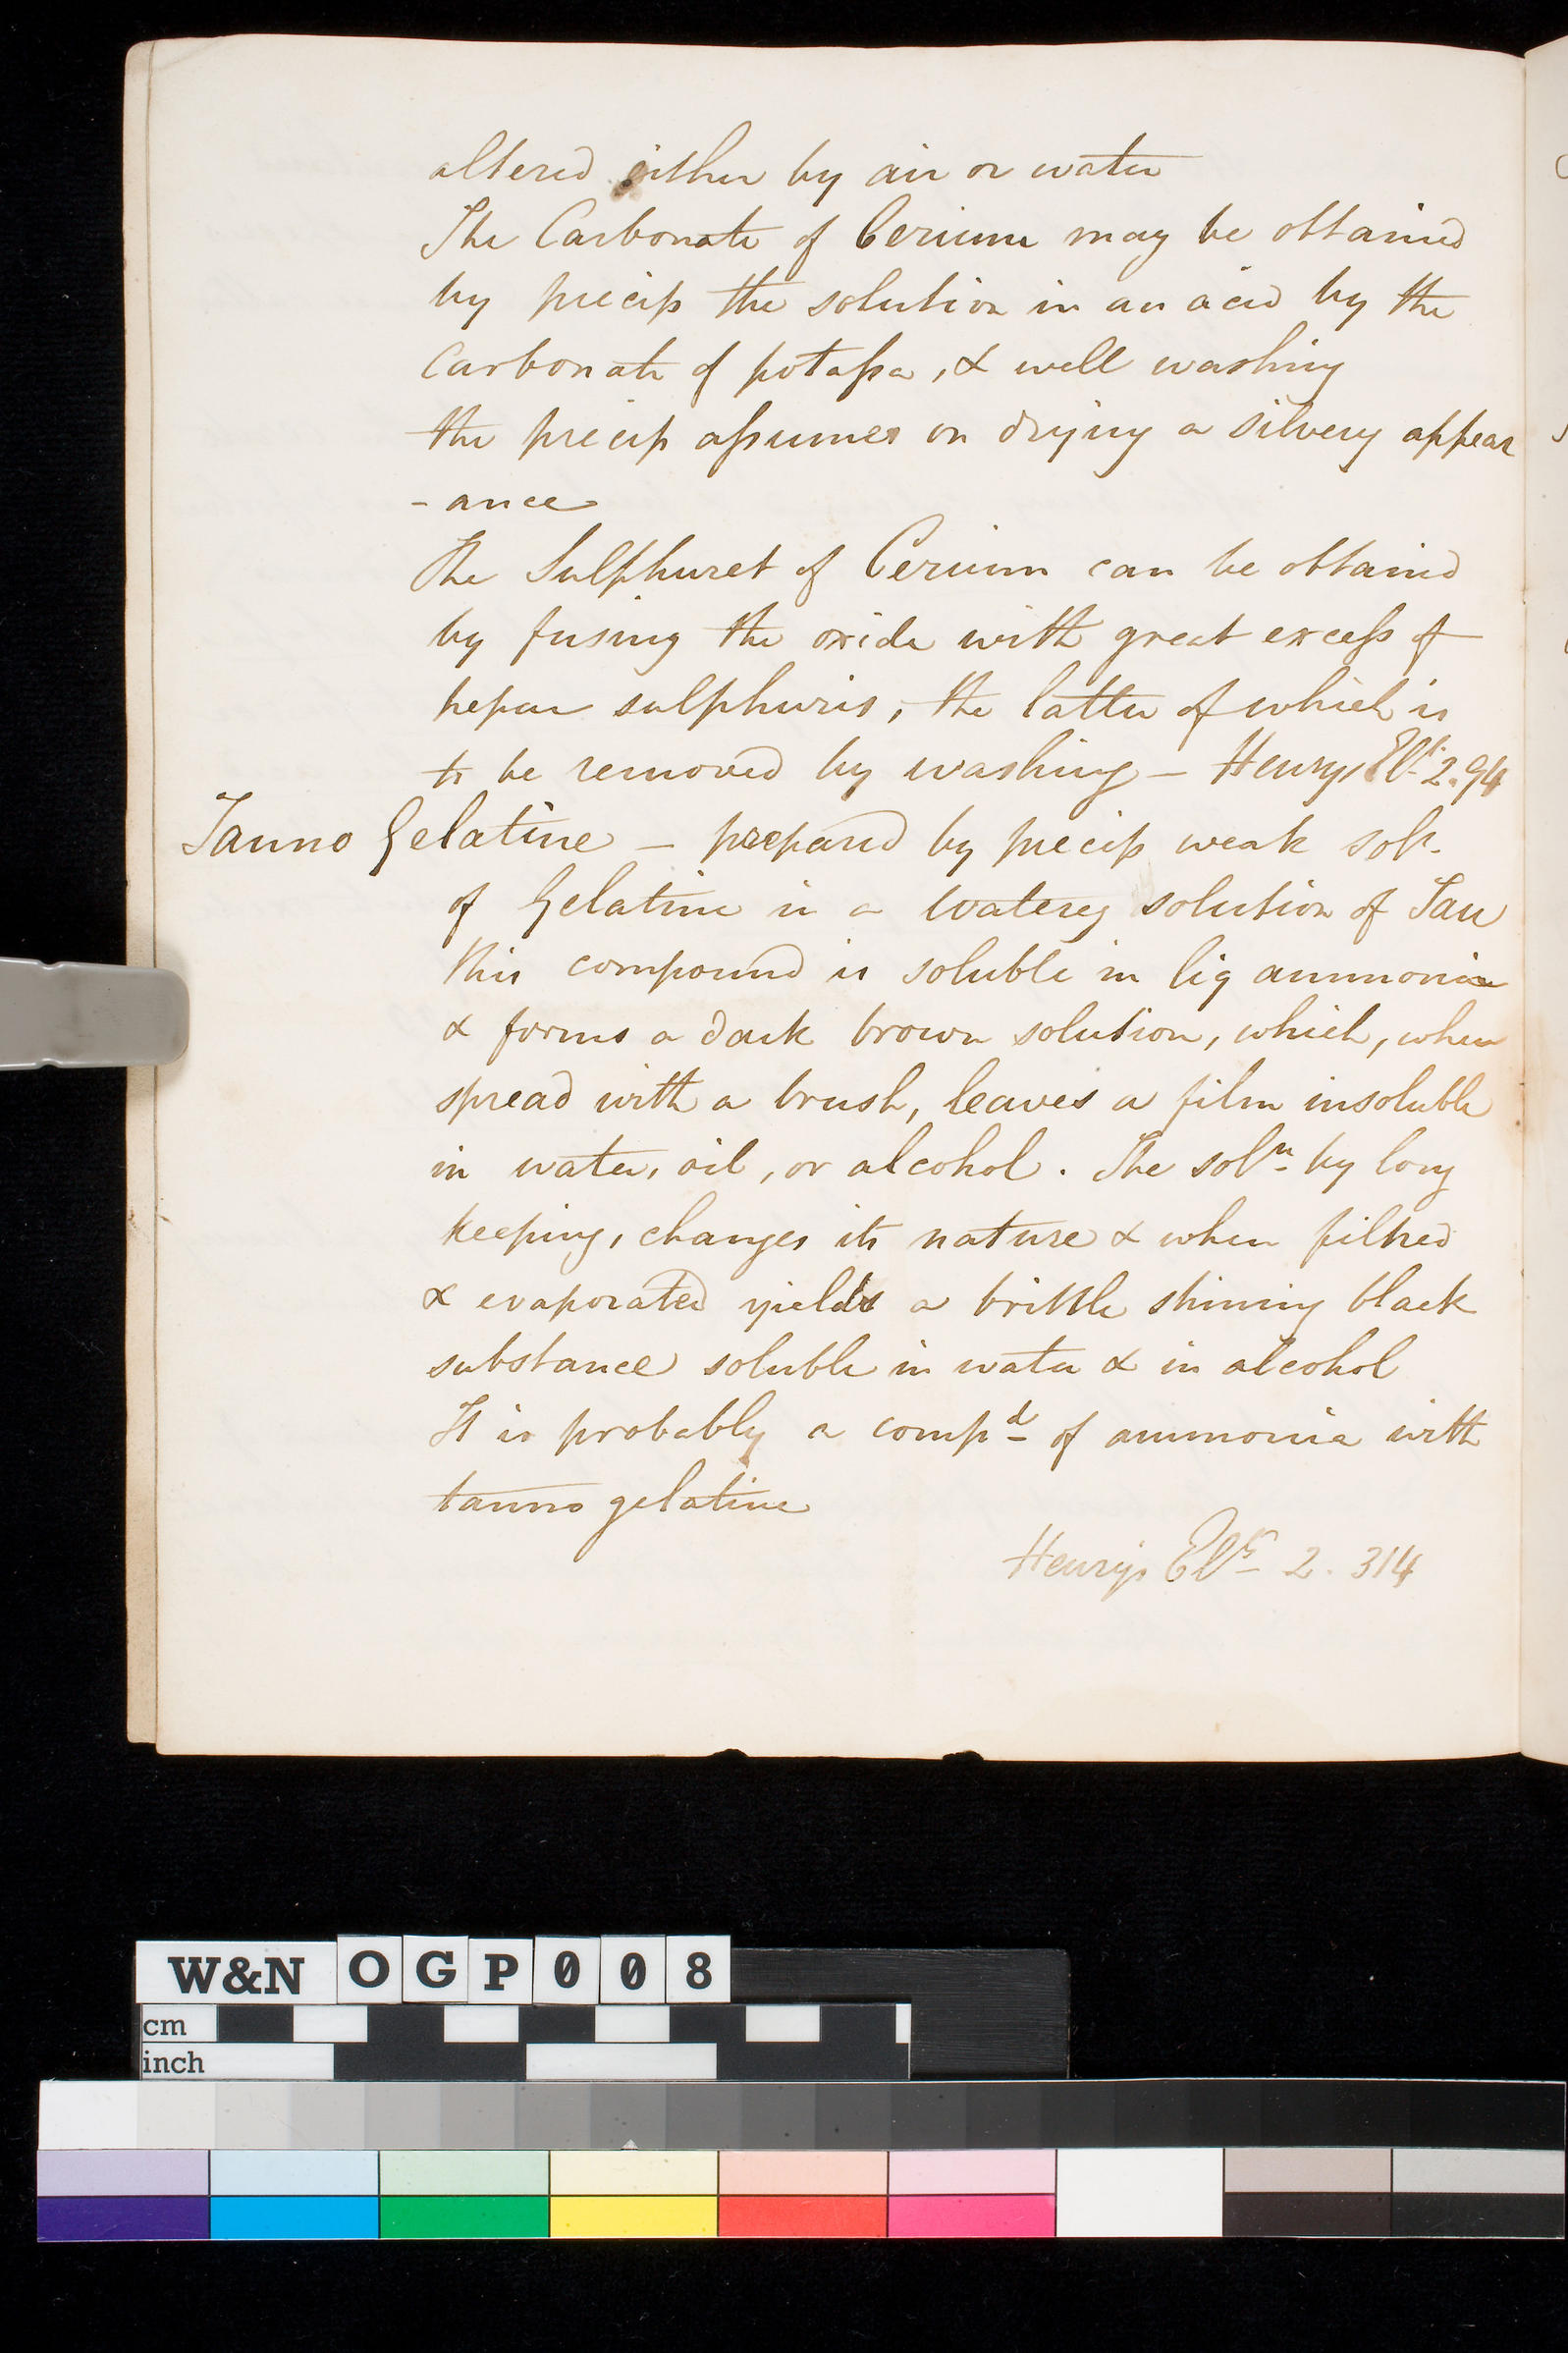 altered either by air or water
The Carbonate of Cerium may be obtained
by precip the solution in an acid by the
Carbonate of potassa, & well washing
the precip assumes on drying a silvery appear
-ance
The Sulphuret of Cerium can be obtained
by fusing the oxide with great excess of
hepar sulphuris, the latter of which is
to be removed by washing - Henrys Elts 2.94
Tanno Gelatine - prepared by precip weak soln
of Gelatine in a watery solution of Tan
this compound is soluble in liq ammonia
& forms a dark brown solution, which, when
spread with a brush, leaves a film insoluble
in water, oil, or alcohol. The soln by long
keeping, changes its nature & when filtred
& evaporated yields a brittle shining black
substance soluble in water & in alcohol
It is probably a compd of ammonia with
tanno gelatine
Henrys Elts 2. 314
W&N OGP008
cm
inch